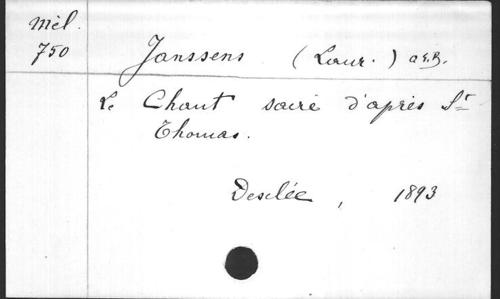 Mél.
750
Janssens (Laur.) O.S.B.
Le Chant sacré d'après St
Thomas.
Desclée, 1893